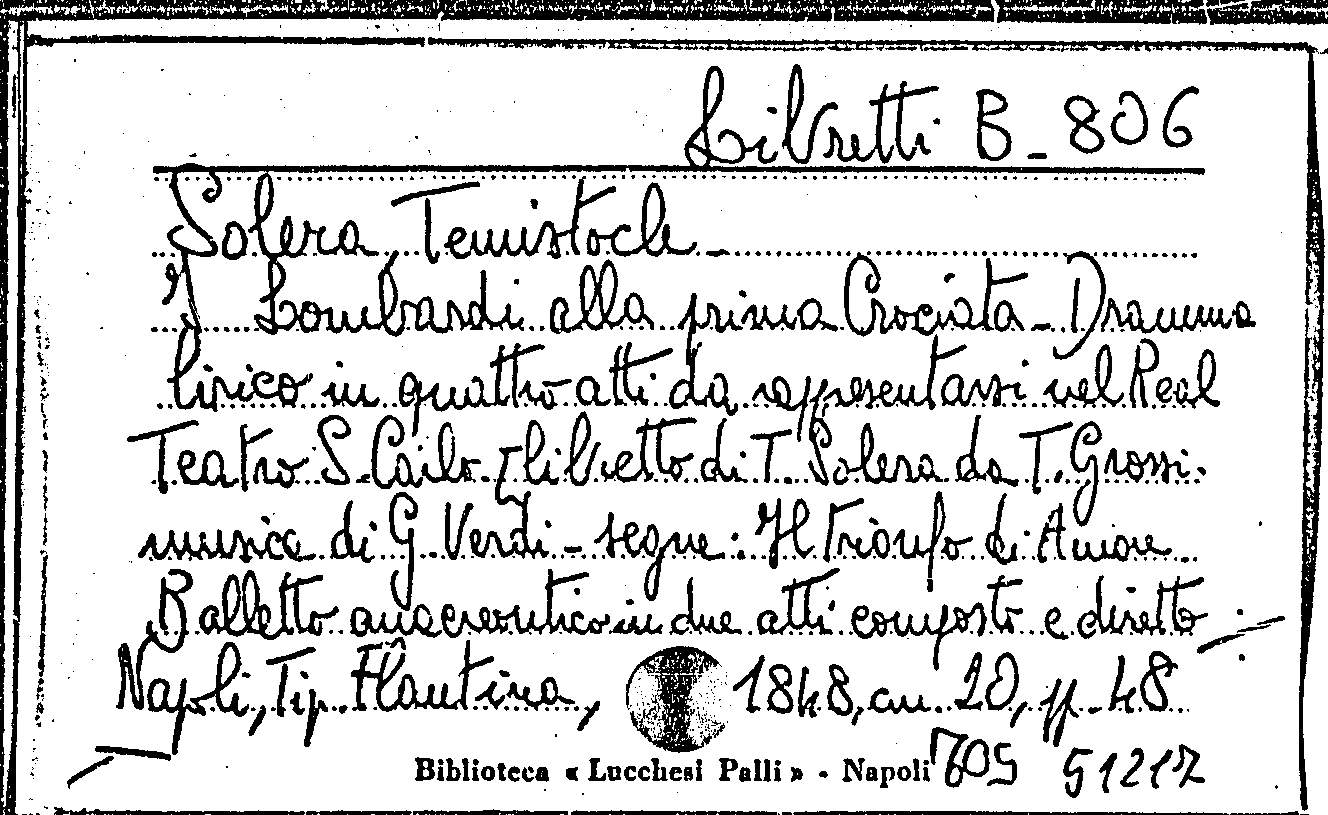 Libretti B - 806
Solera, Temistocle -
I Lombardi alla prima Crociata - Dramma
lirico in quattro atti da rappresentarsi nel Real
Teatro S. Carlo [libretto di T. Solera da T. Grossi.
musica di G. Verdi - segue: Il trionfo di Amore
Balletto anacreontico in due atti composto e diretto
Napoli, Tip. Flautina, 1848, cm. 20, pp. 48
Biblioteca « Lucchesi Palli » - Napoli 51217